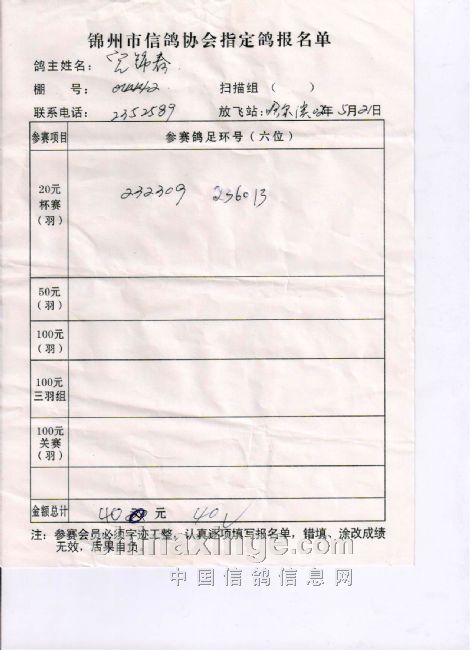 锦州市信鸽协会指定鸽报名单
鸽主姓名: 锦春
棚 号: 扫描组 ( )
联系电话: 2352589 放飞站: 哈尔滨 年 5月21日
参赛项目 参赛鸽足环号(六位)
20元
杯赛
(羽)
232309 236013
50元
(羽)
100元
(羽)
100元
三羽组
100元
关赛
(羽)
金额总计 40 元 40
注: 参赛会员必须字迹工整。认真逐项填写报名单,错填、涂改成绩
无效,后果自负。
inaxinge.com
中国信鸽信息网